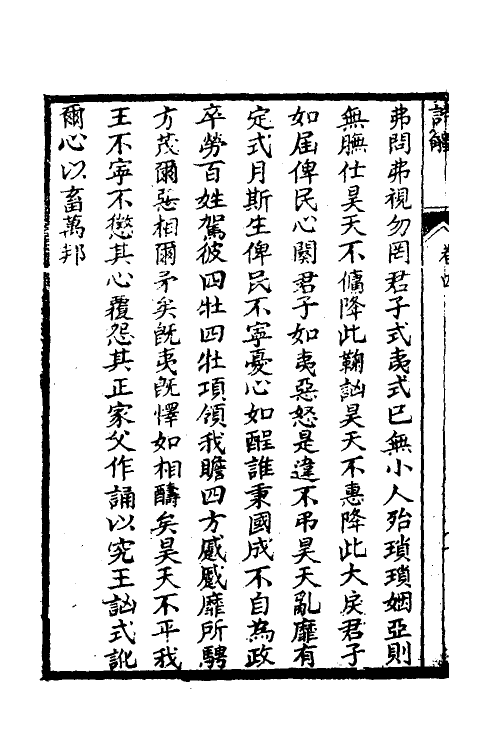 詩解
卷四
弗問弗視勿罔君子式夷式已無小人殆瑣瑣姻亞則
無膴仕昊天不傭降此鞠訩昊天不惠降此大戾君子
如屆俾民心闋君子如夷惡怒是違不弔昊天亂靡有
定式月斯生俾民不寧憂心如酲誰秉國成不自為政
卒勞百姓駕彼四牡四牡項領我瞻四方蹙蹙靡所騁
方茂爾惡相爾矛矣既夷既懌如相醻矣昊天不平我
王不寧不懲其心覆怨其正家父作誦以究王訩式訛
爾心以畜萬邦